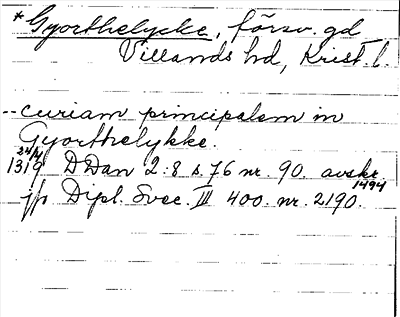 *Gyorthelycke, försv. gd
Villands hd, Krist. l.
-- curiam principalem in
Gyorthelykke.
24/4
1319 DDan 2:8 s. 76 nr. 90. avskr.
1494
jfr Dipl. Svec. III 400. nr. 2190.